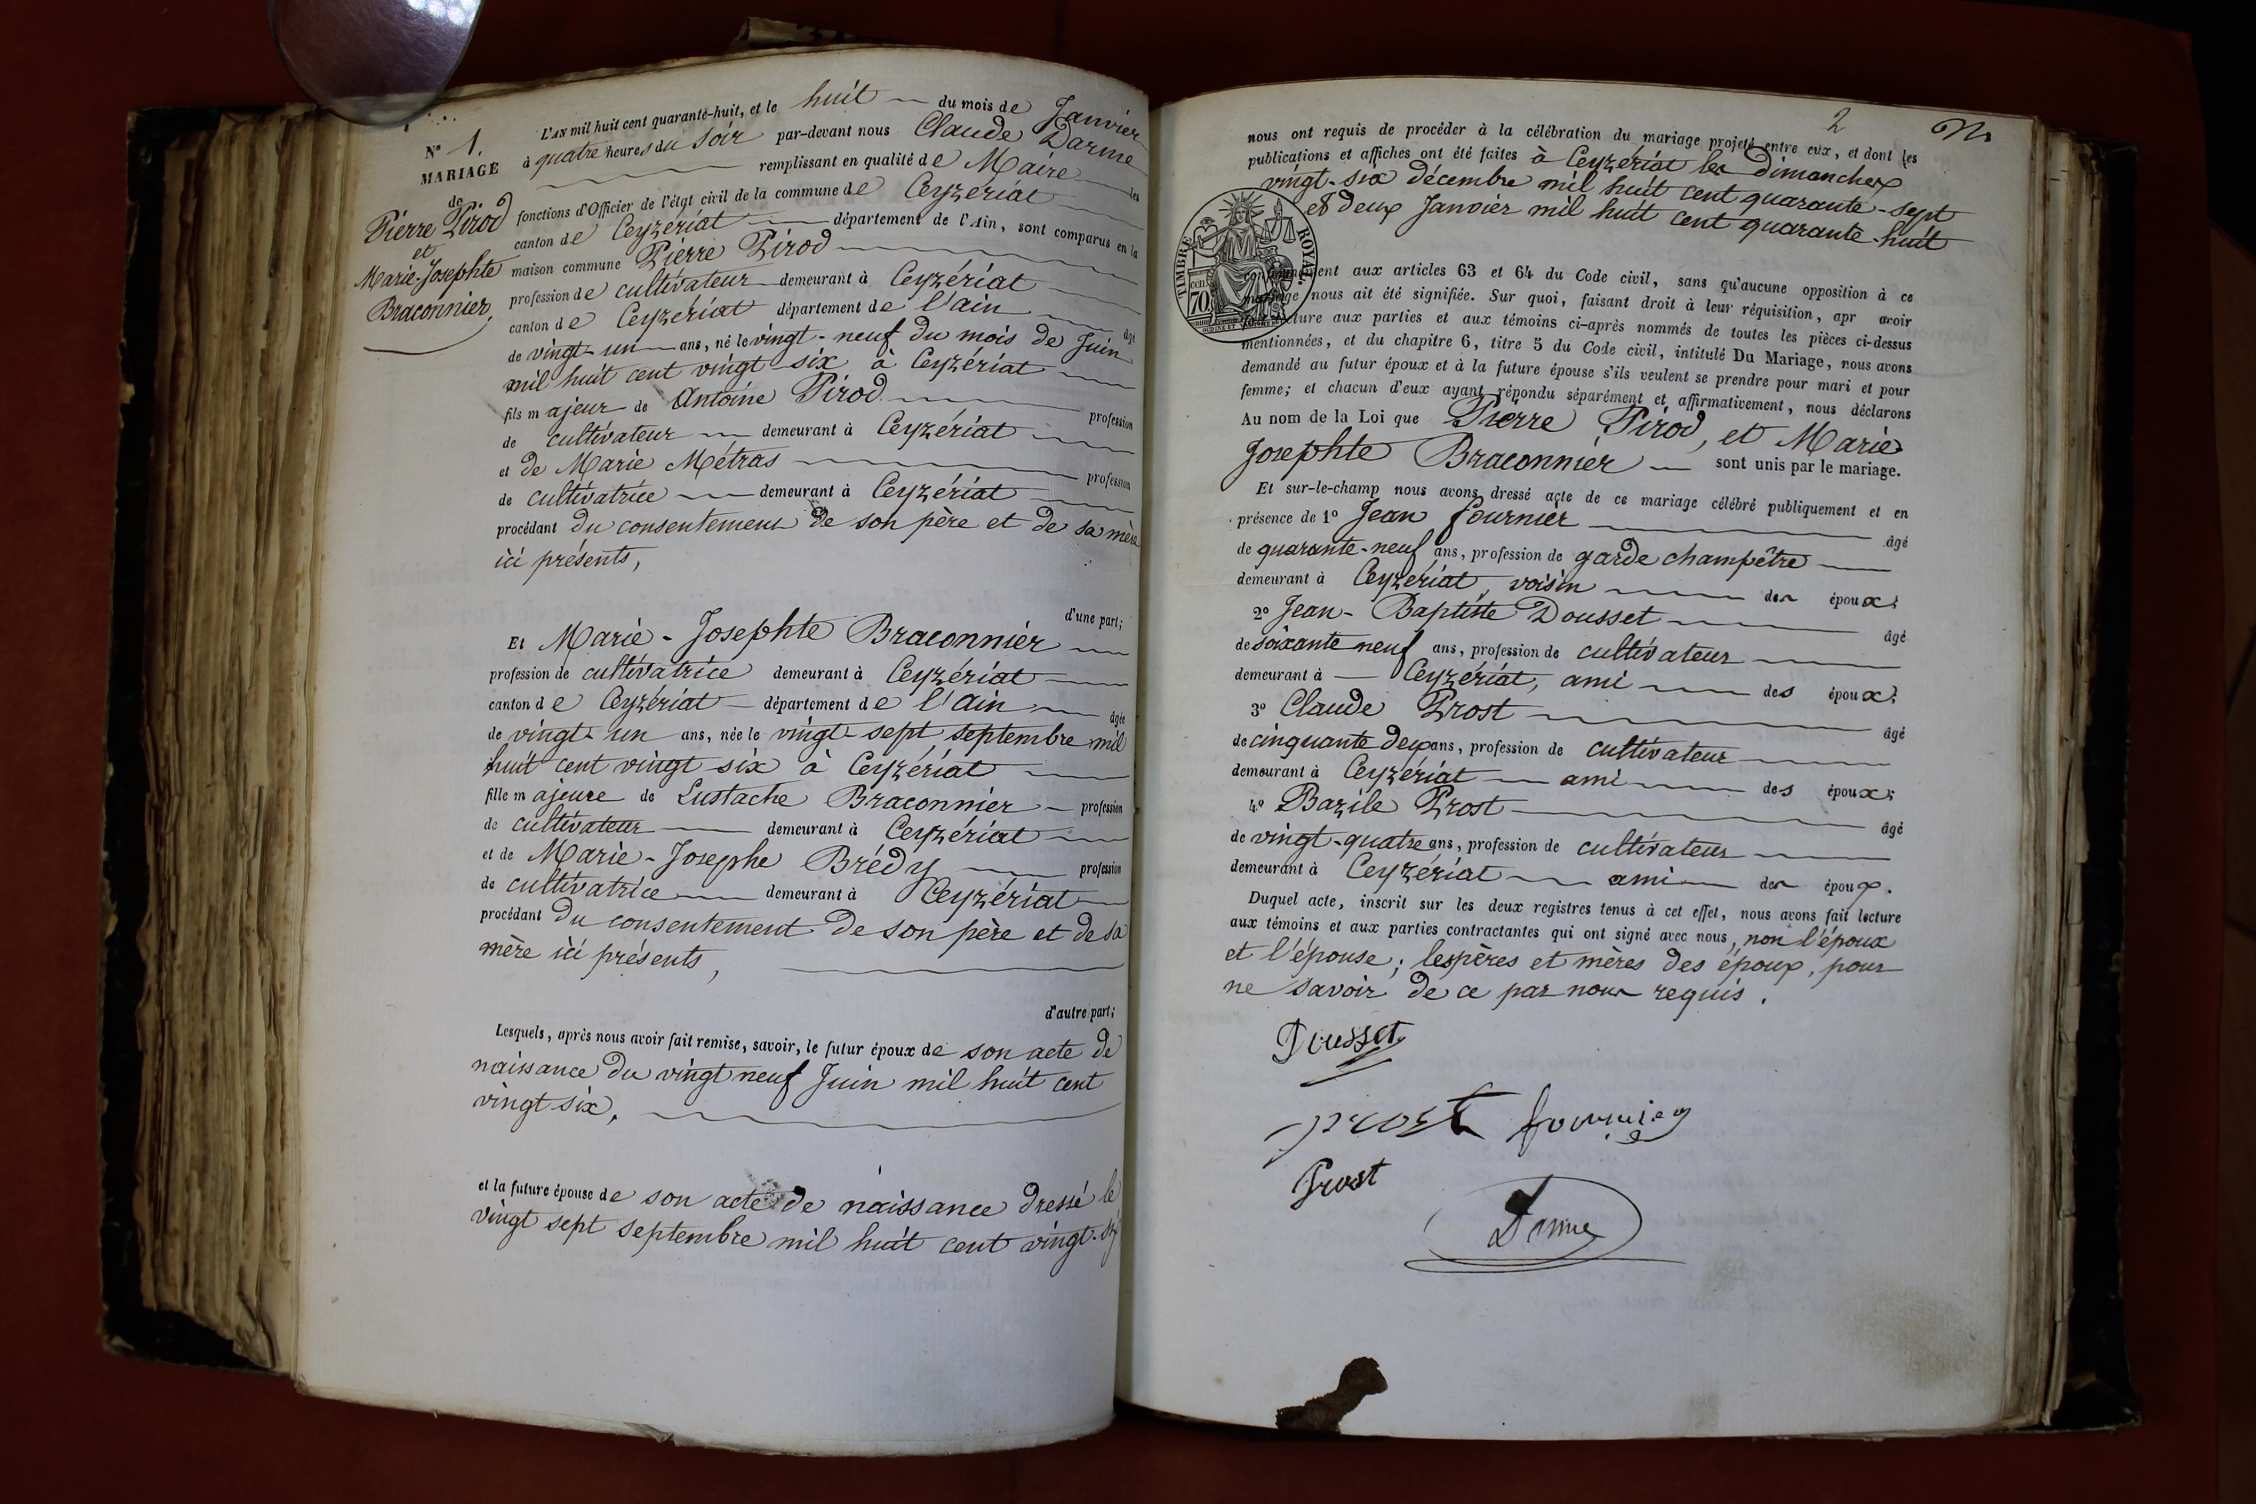 N° 1.
MARIAGE
de
Pierre Pirod
et
Marie-Josephte
Braconnier,
L'AN mil huit cent quarante-huit, et le huit du mois de Janvier
à quatre heures du soir par-devant nous Claude Darme
remplissant en qualité de Maire les
fonctions d'Officier de l'état civil de la commune de Ceyzériat
canton de Ceyzériat département de l'Ain, sont comparus en la
maison commune Pierre Pirod
profession de cultivateur demeurant à Ceyzériat
canton de Ceyzériat département de l'ain âgé
de vingt-un ans, né le vingt-neuf du mois de Juin
mil huit cent vingt-six à Ceyzériat
fils majeur de Antoine Pirod profession
de cultivateur demeurant à Ceyzériat
et de Marie Métras profession
de cultivatrice demeurant à Ceyzériat
procédant du consentement de son père et de sa mère
ici présents,
d'une part;
Et Marie-Josephte Braconnier
profession de cultivatrice demeurant à Ceyzériat
canton de Ceyzériat département de l'ain âgée
de vingt-un ans, née le vingt-sept septembre mil
huit cent vingt six à Ceyzériat
fille majeure de Eustache Braconnier profession
de cultivateur demeurant à Ceyzériat
et de Marie-Josephe Brédy profession
de cultivatrice demeurant à Ceyzériat
procédant du consentement de son père et de sa
mère ici présents,
d'autre part;
Lesquels, après nous avoir fait remise, savoir, le futur époux de son acte de
naissance du vingt neuf Juin mil huit cent
vingt six.
et la future épouse de son acte de naissance dressé le
vingt sept septembre mil huit cent vingt-six
2
nous ont requis de procéder à la célébration du mariage projeté entre eux, et dont les
publications et affiches ont été faites à Ceyzériat les Dimanches
vingt-six décembre mil huit cent quarante-sept
et deux Janvier mil huit cent quarante-huit
TIMBRE ROYAL.
70 cen
conformément aux articles 63 et 64 du Code civil, sans qu'aucune opposition à ce
mariage nous ait été signifiée. Sur quoi, faisant droit à leur réquisition, apr avoir
lecture aux parties et aux témoins ci-après nommés de toutes les pièces ci-dessus
mentionnées, et du chapitre 6, titre 5 du Code civil, intitulé Du Mariage, nous avons
demandé au futur époux et à la future épouse s'ils veulent se prendre pour mari et pour
femme; et chacun d'eux ayant répondu séparément et affirmativement, nous déclarons
Au nom de la Loi que Pierre Pirod, et Marie
Josephte Braconnier sont unis par le mariage.
Et sur-le-champ nous avons dressé acte de ce mariage célébré publiquement et en
présence de 1° Jean fournier âgé
de quarante-neuf ans, profession de garde champêtre
demeurant à Ceyzériat, voisin des époux;
2° Jean-Baptiste Dousset âgé
de soixante neuf ans, profession de cultivateur
demeurant à Ceyzériat, ami des époux;
3° Claude Prost âgé
de cinquante deux ans, profession de cultivateur
demeurant à Ceyzériat ami des époux;
4° Bazile Prost âgé
de vingt-quatre ans, profession de cultivateur
demeurant à Ceyzériat ami des époux.
Duquel acte, inscrit sur les deux registres tenus à cet effet, nous avons fait lecture
aux témoins et aux parties contractantes qui ont signé avec nous, non l'époux
et l'épouse; les pères et mères des époux, pour
ne savoir de ce par nous requis.
Dousset
prost fournier
Prost
Darme